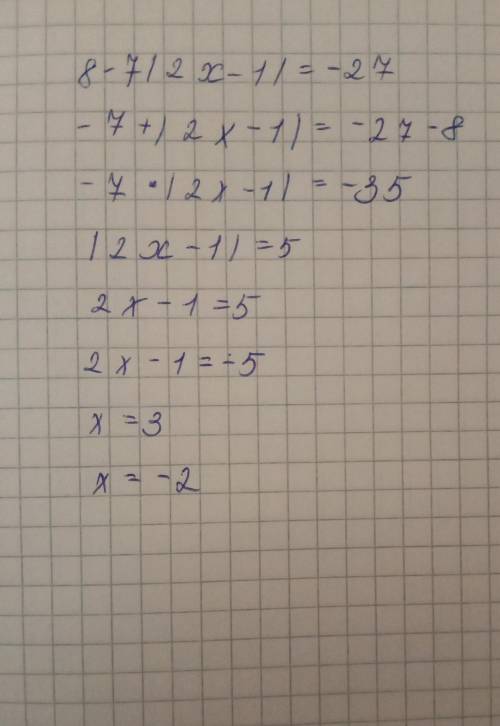 8 - 7|2x - 1| = -27
-7 + |2x - 1| = -27 - 8
-7 · |2x - 1| = -35
|2x - 1| = 5
2x - 1 = 5
2x - 1 = -5
x = 3
x = -2